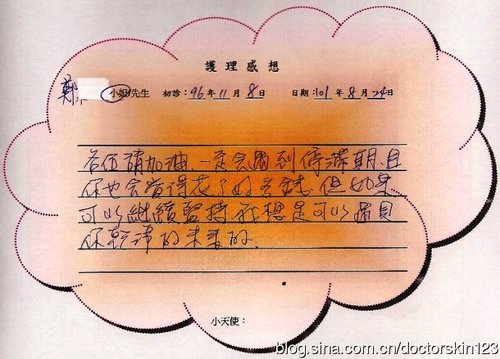 護理感想
鄭 小姐/先生 初診：96年11月8日 日期：101年8月24日
各位請加油，一定會遇到停滯期，且
你也會覺得花了好多錢，但如果
可以繼續堅持，我想是可以見
你乾淨的未來的.
小天使：
blog.sina.com.cn/doctorskin123